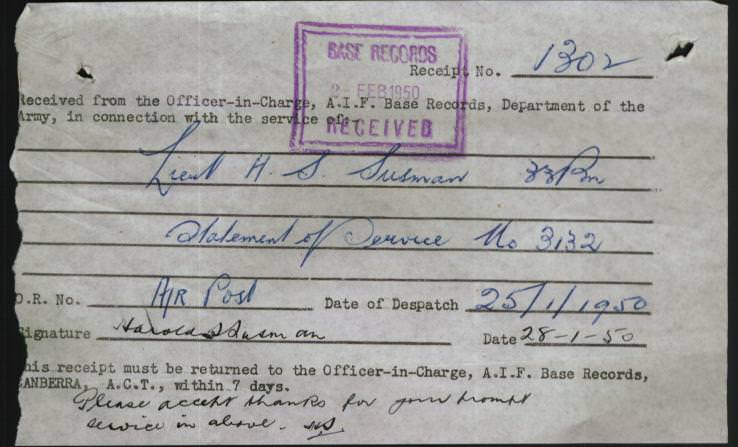 BASE RECORDS
2- FEB 1950
RECEIVED
Receipt No. 1302
Received from the Officer-in-Charge, A.I.F. Base Records, Department of the
Army, in connection with the service of:-
Lieut H. S. Susman 33Bn
Statement of Service No 3132
O.R. No. A/R Post Date of Despatch 25/1/1950
Signature Harold S Susman Date 28-1-50
his receipt must be returned to the Officer-in-Charge, A.I.F. Base Records,
CANBERRA, A.C.T., within 7 days.
Please accept thanks for your prompt
service in above. HSS.